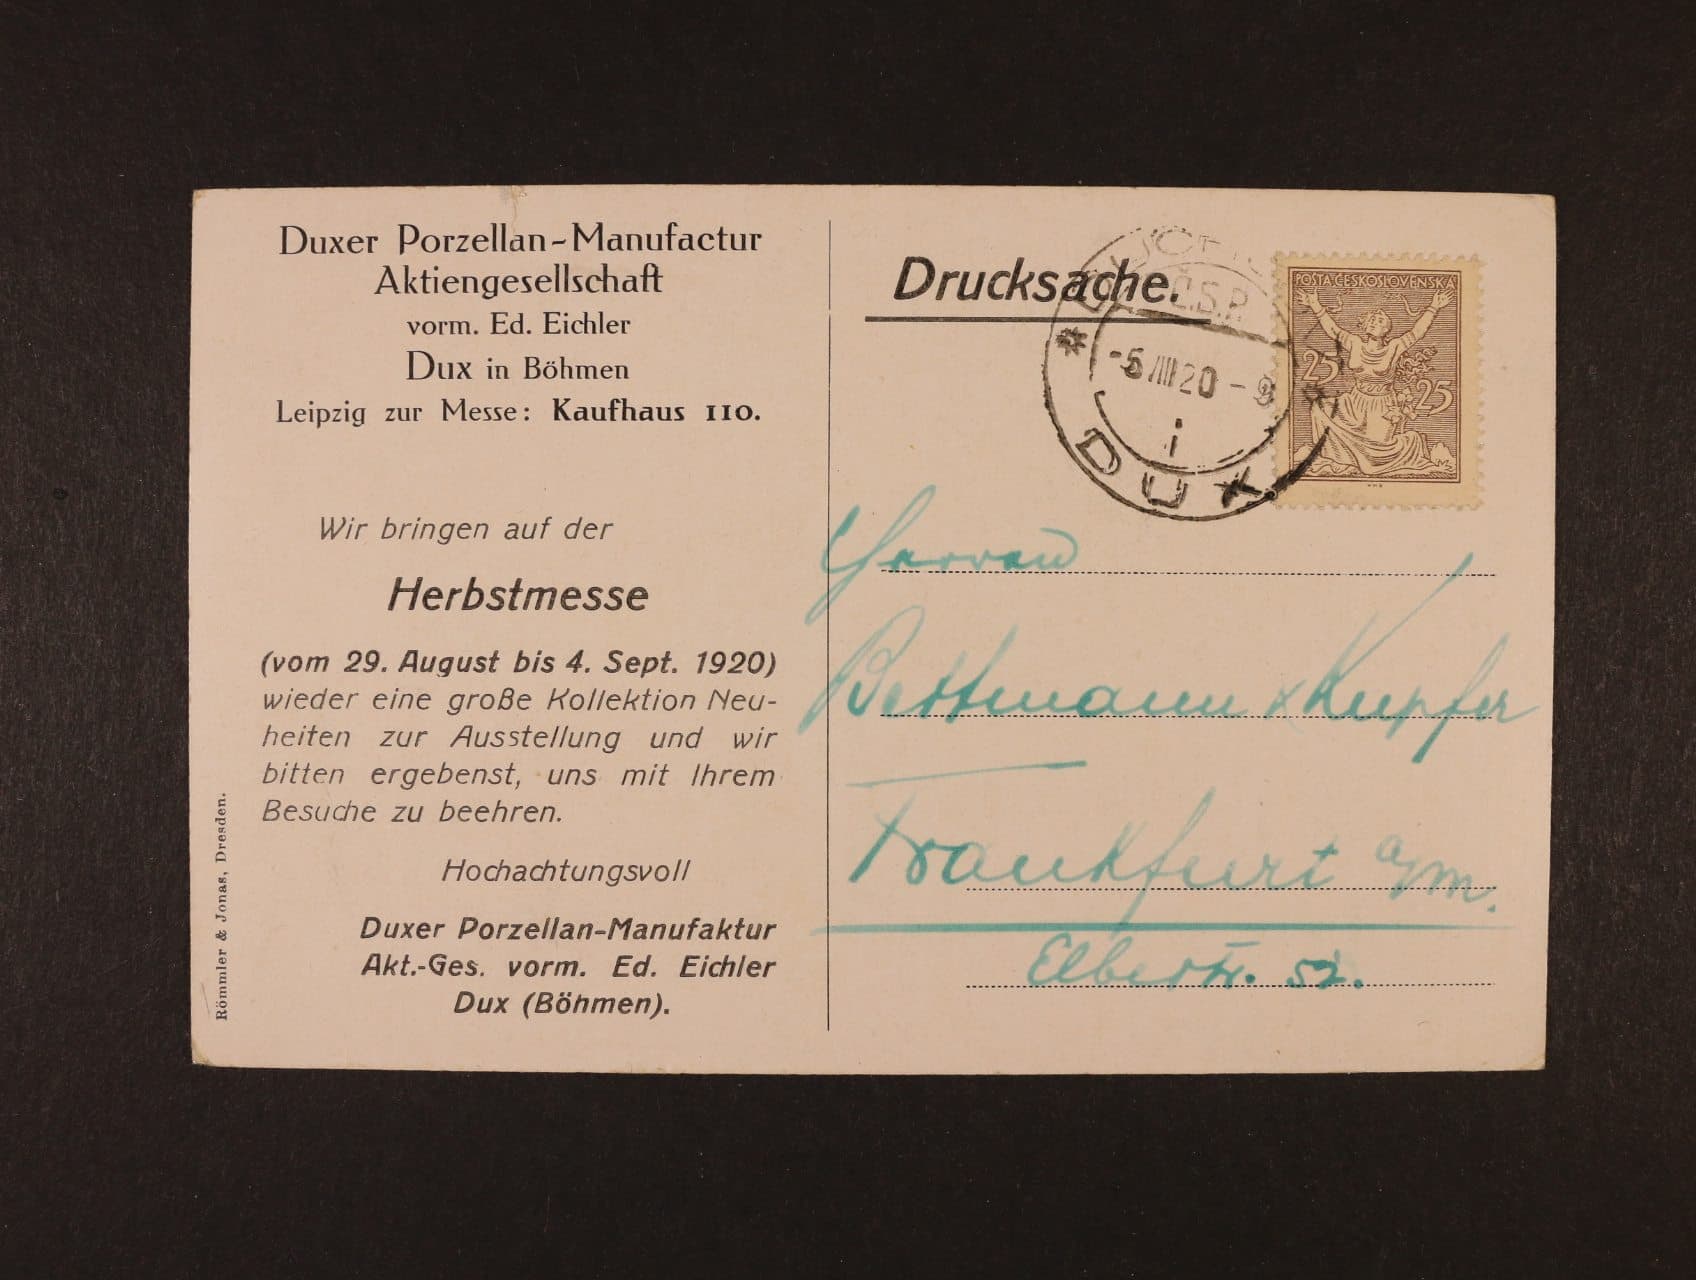 Duxer Porzellan-Manufactur
Aktiengesellschaft
vorm. Ed. Eichler
Dux in Böhmen
Leipzig zur Messe: Kaufhaus 110.
Wir bringen auf der
Herbstmesse
(vom 29. August bis 4. Sept. 1920)
wieder eine große Kollektion Neu-
heiten zur Ausstellung und wir
bitten ergebenst, uns mit Ihrem
Besuche zu beehren.
Hochachtungsvoll
Duxer Porzellan-Manufaktur
Akt.-Ges. vorm. Ed. Eichler
Dux (Böhmen).
Römmler & Jonas, Dresden.
Drucksache.
Č.S.P.
-5 /IIII 20 - 9
DUX
POSTA ČESKOSLOVENSKÁ
25 25
Herren
Bettmann & Kupfer
Frankfurt a/m.
Elbestr. 52.